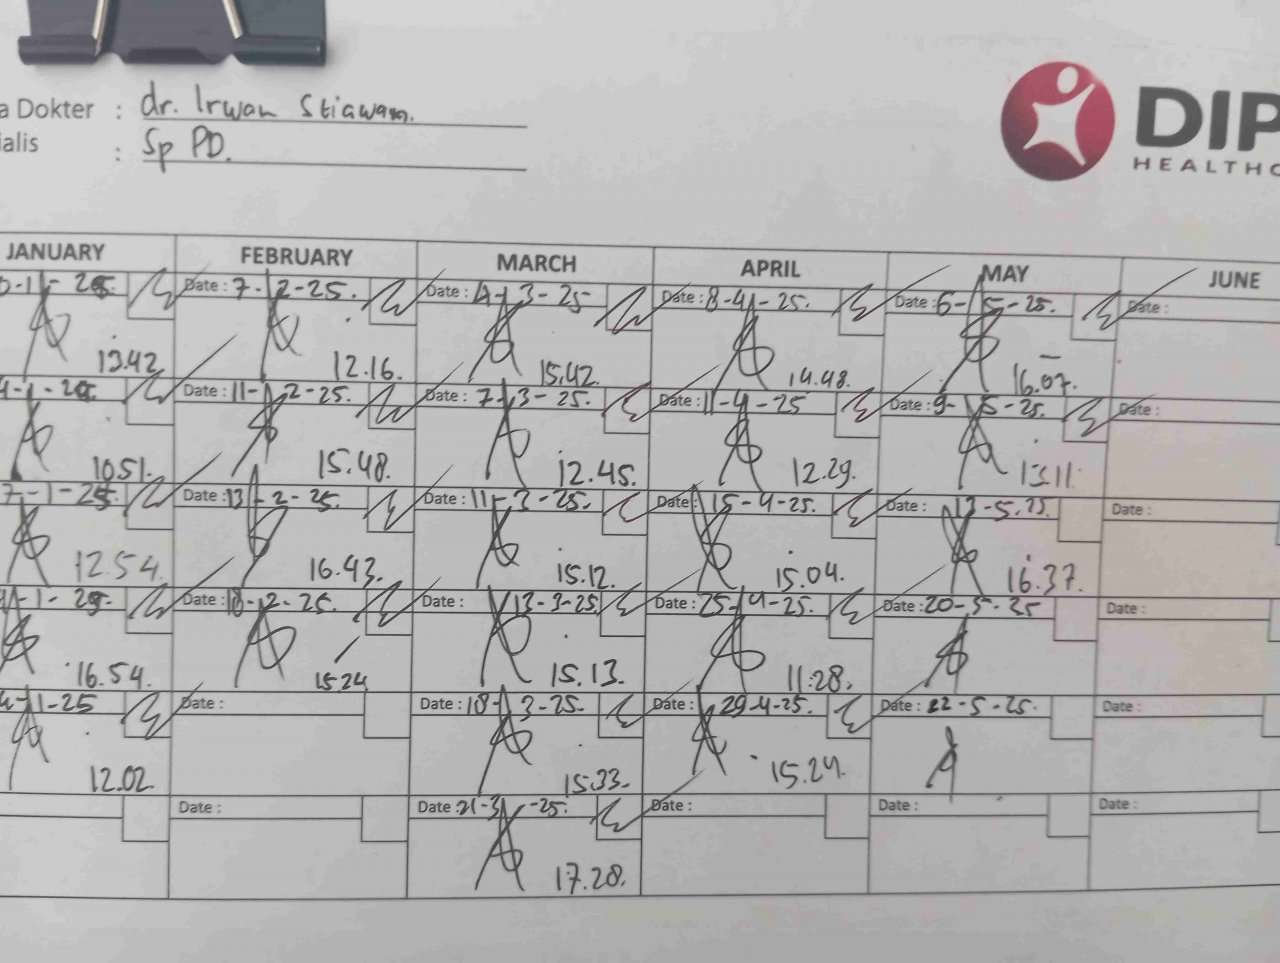 a Dokter : dr. Irwan Stiawan.
ialis : Sp PD.
DIP
HEALTHC
JANUARY FEBRUARY MARCH APRIL MAY JUNE
-1-25 Date : 7-2-25. Date : 4-3-25 Date : 8-4-25. Date : 6-5-25. Date :
13.42 12.16. 15.42. 14.48. 16.07.
-1-25 Date : 11-2-25. Date : 7-3-25. Date : 11-4-25 Date : 9-5-25. Date :
10.51. 15.48. 12.45. 12.29. 13.11.
7-1-25 Date : 13-2-25. Date : 11-3-25. Date : 15-4-25. Date : 13-5.25. Date :
12.54. 16.43. 15.12. 15.04. 16.37.
-1-25 Date : 18-2-25. Date : 13-3-25 Date : 25-4-25. Date : 20-5-25 Date :
16.54. 15.24 15.13. 11.28.
4-1-25 Date : Date : 18-3-25. Date : 29-4-25. Date : 22-5-25. Date :
12.02 15.33. 15.24.
Date : Date : 21-3-25. Date : Date : Date :
17.28.